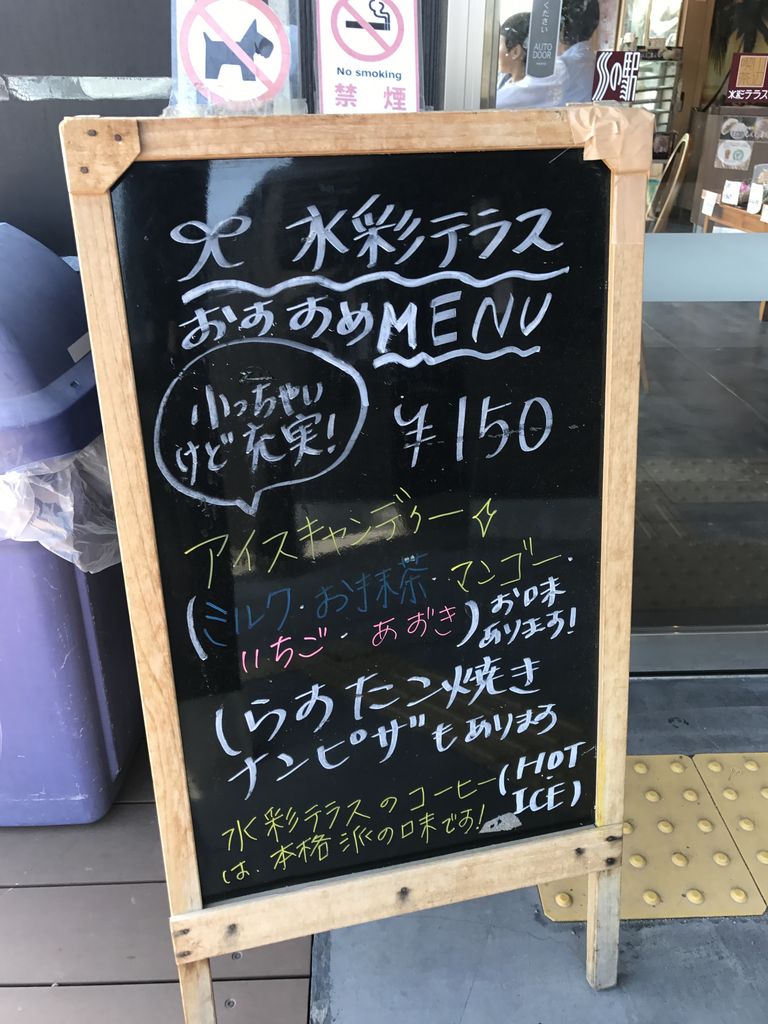 ください
AUTO
DOOR
No smoking
禁煙
水彩テラス
水彩テラス
おすすめMENU
小っちゃい
けど充実!
¥150
アイスキャンディー
(ミルク・お抹茶・マンゴー・
いちご・あずき)お味
あります!
しらすたこ焼き
ナンピザもあります
水彩テラスのコーヒー(HOT
ICE)
は、本格派の味です!